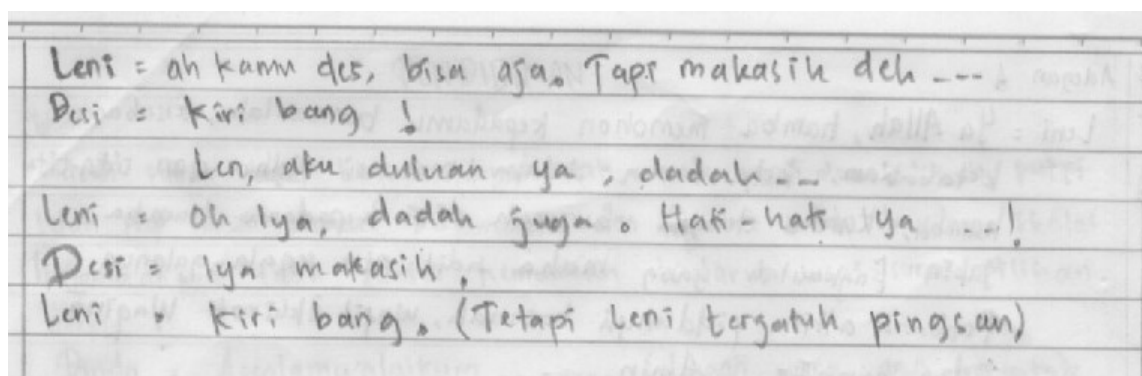 Leni = ah kamu des, bisa aja. Tapi makasih deh ---.
Desi = Kiri bang !
Len, aku duluan ya, dadah ---
Leni = Oh iya, dadah juga. Hati-hati ya !
Desi = Iya makasih.
Leni Kiri bang. (Tetapi Leni terjatuh pingsan)